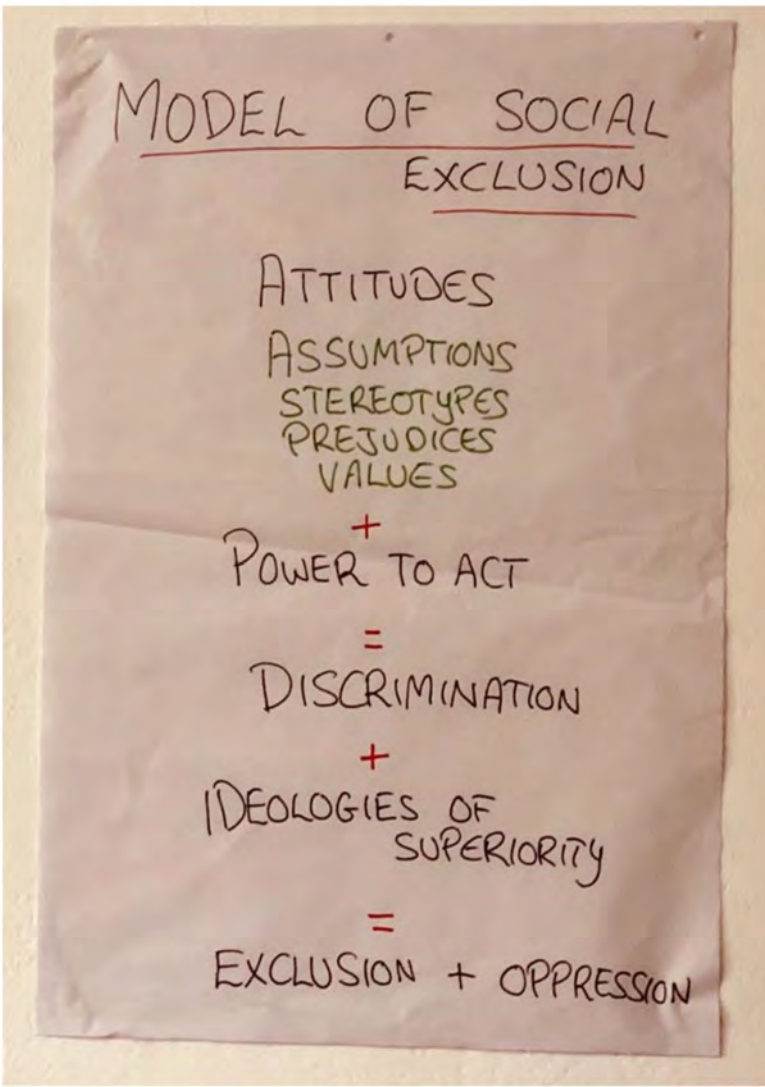 MODEL OF SOCIAL
EXCLUSION
ATTITUDES
ASSUMPTIONS
STEREOTYPES
PREJUDICES
VALUES
+
POWER TO ACT
=
DISCRIMINATION
+
IDEOLOGIES OF
SUPERIORITY
=
EXCLUSION + OPPRESSION